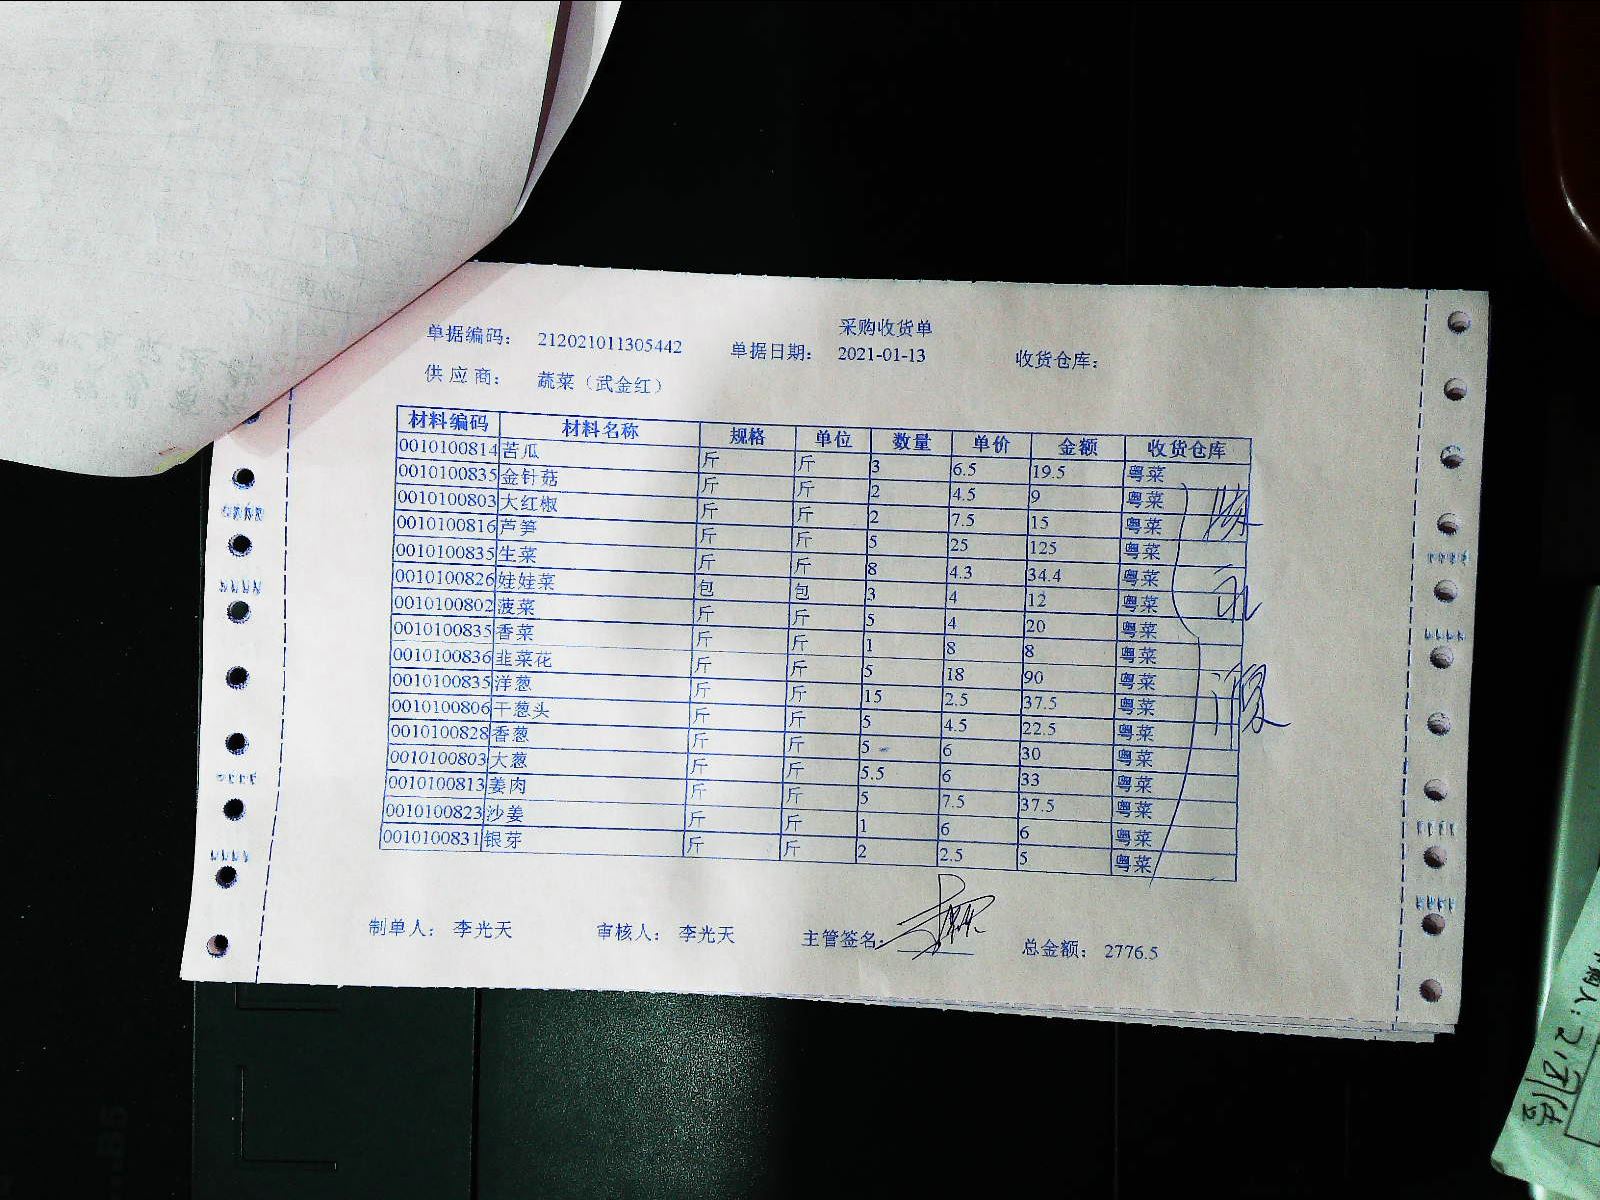 采购收货单
单据编码: 212021011305442 单据日期: 2021-01-13 收货仓库:
供应商: 蔬菜（武金红）
材料编码 材料名称 规格 单位 数量 单价 金额 收货仓库
0010100814 苦瓜 斤 斤 3 6.5 19.5 粤菜
0010100835 金针菇 斤 斤 2 4.5 9 粤菜
0010100803 大红椒 斤 斤 2 7.5 15 粤菜
0010100816 芦笋 斤 斤 5 25 125 粤菜
0010100835 生菜 斤 斤 8 4.3 34.4 粤菜
0010100826 娃娃菜 包 包 3 4 12 粤菜
0010100802 菠菜 斤 斤 5 4 20 粤菜
0010100835 香菜 斤 斤 1 8 8 粤菜
0010100836 韭菜花 斤 斤 5 18 90 粤菜
0010100835 洋葱 斤 斤 15 2.5 37.5 粤菜
0010100806 干葱头 斤 斤 5 4.5 22.5 粤菜
0010100828 香葱 斤 斤 5 6 30 粤菜
0010100803 大葱 斤 斤 5.5 6 33 粤菜
0010100813 姜肉 斤 斤 5 7.5 37.5 粤菜
0010100823 沙姜 斤 斤 1 6 6 粤菜
0010100831 银芽 斤 斤 2 2.5 5 粤菜
制单人: 李光天 审核人: 李光天 主管签名: 总金额: 2776.5